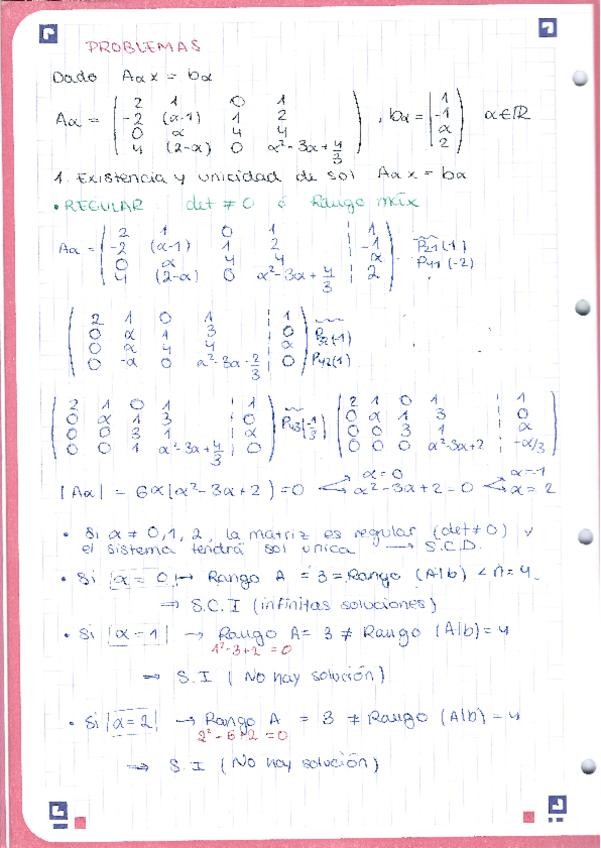 PROBLEMAS
Dado Aα x = bα
Aα = ( 2 1 0 1 ) , bα = ( 1 ) α ∈ ℝ
( -2 (α-1) 1 2 ) ( -1 )
( 0 α 4 4 ) ( α )
( 4 (2-α) 0 α²-3α+4/3 ) ( 2 )
1. Existencia y unicidad de sol Aα x = bα
• REGULAR det ≠ 0 ó Rango máx
Aα = ( 2 1 0 1 | 1 )
( -2 (α-1) 1 2 | -1 ) P21(1)
( 0 α 4 4 | α ) P41(-2)
( 4 (2-α) 0 α²-3α+4/3 | 2 )
( 2 1 0 1 | 1 )
( 0 α 1 3 | 0 ) P32(-1)
( 0 α 4 4 | α ) P42(1)
( 0 -α 0 α²-3α-2/3 | 0 )
( 2 1 0 1 | 1 ) ( 2 1 0 1 | 1 )
( 0 α 1 3 | 0 ) P43(-1/3) ( 0 α 1 3 | 0 )
( 0 0 3 1 | α ) ( 0 0 3 1 | α )
( 0 0 1 α²-3α+4/3 | 0 ) ( 0 0 0 α²-3α+2 | -α/3 )
|Aα| = 6α(α²-3α+2) = 0 α=0 α²-3α+2=0 α=1 α=2
• Si α ≠ 0,1,2, la matriz es regular (det≠0) y
el sistema tendrá sol unica → S.C.D.
• Si |α = 0| → Rango A = 3 = Rango (A|b) < n = 4
⇒ S.C.I (infinitas soluciones)
• Si |α=1| → Rango A = 3 ≠ Rango (A|b) = 4
1²-3+2 = 0
⇒ S.I (No hay solución)
• Si |α=2| → Rango A = 3 ≠ Rango (A|b) = 4
2²-6+2 = 0
⇒ S.I (No hay solución)